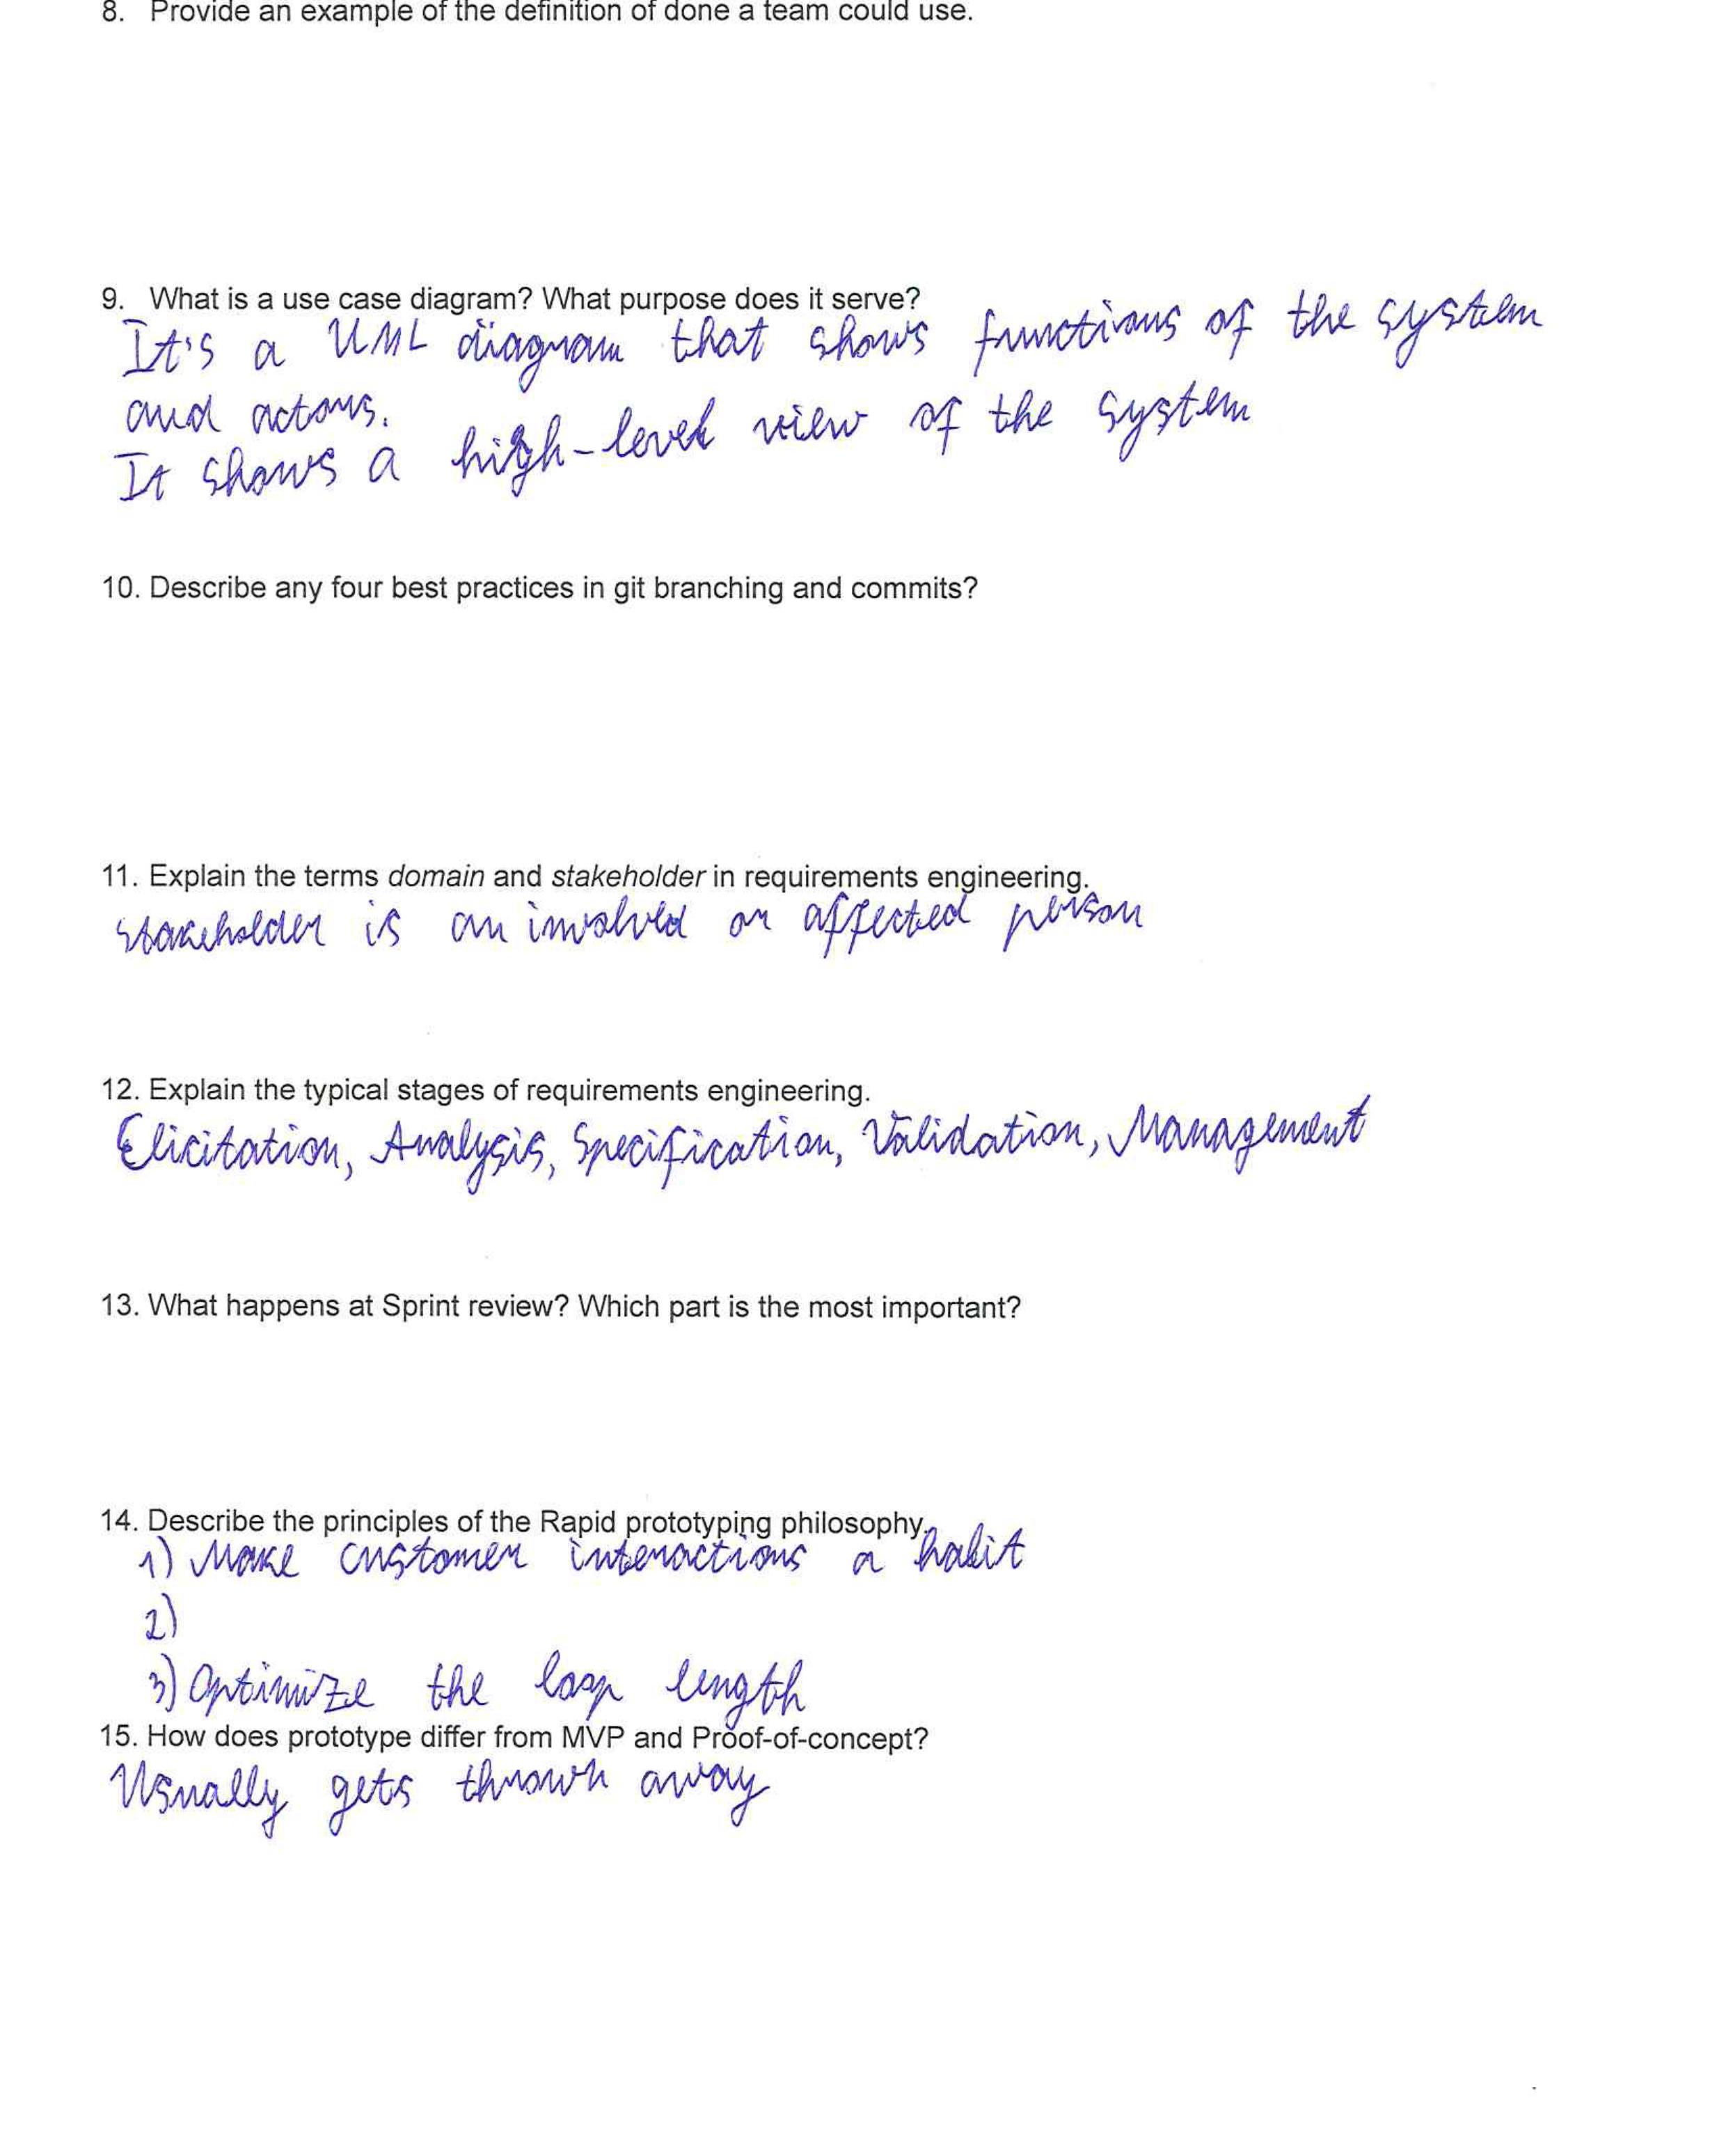 8. Provide an example of the definition of done a team could use.
9. What is a use case diagram? What purpose does it serve?
It's a UML diagram that shows functions of the system
and actors.
It shows a high-level view of the system
10. Describe any four best practices in git branching and commits?
11. Explain the terms domain and stakeholder in requirements engineering.
stakeholder is an involved or affected person
12. Explain the typical stages of requirements engineering.
Elicitation, Analysis, Specification, Validation, Management
13. What happens at Sprint review? Which part is the most important?
14. Describe the principles of the Rapid prototyping philosophy.
1) Make customer interactions a habit
2)
3) Optimize the loop length
15. How does prototype differ from MVP and Proof-of-concept?
Usually gets thrown away